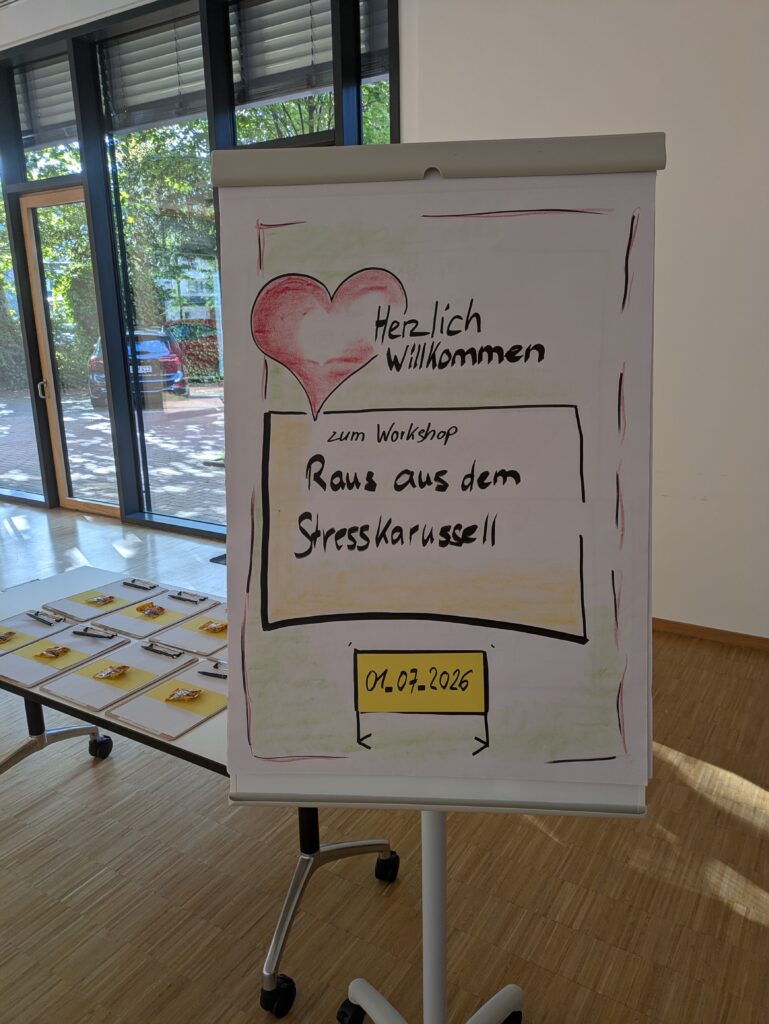 Herzlich
Willkommen
zum Workshop
Raus aus dem
Stresskarussell
01.07.2026